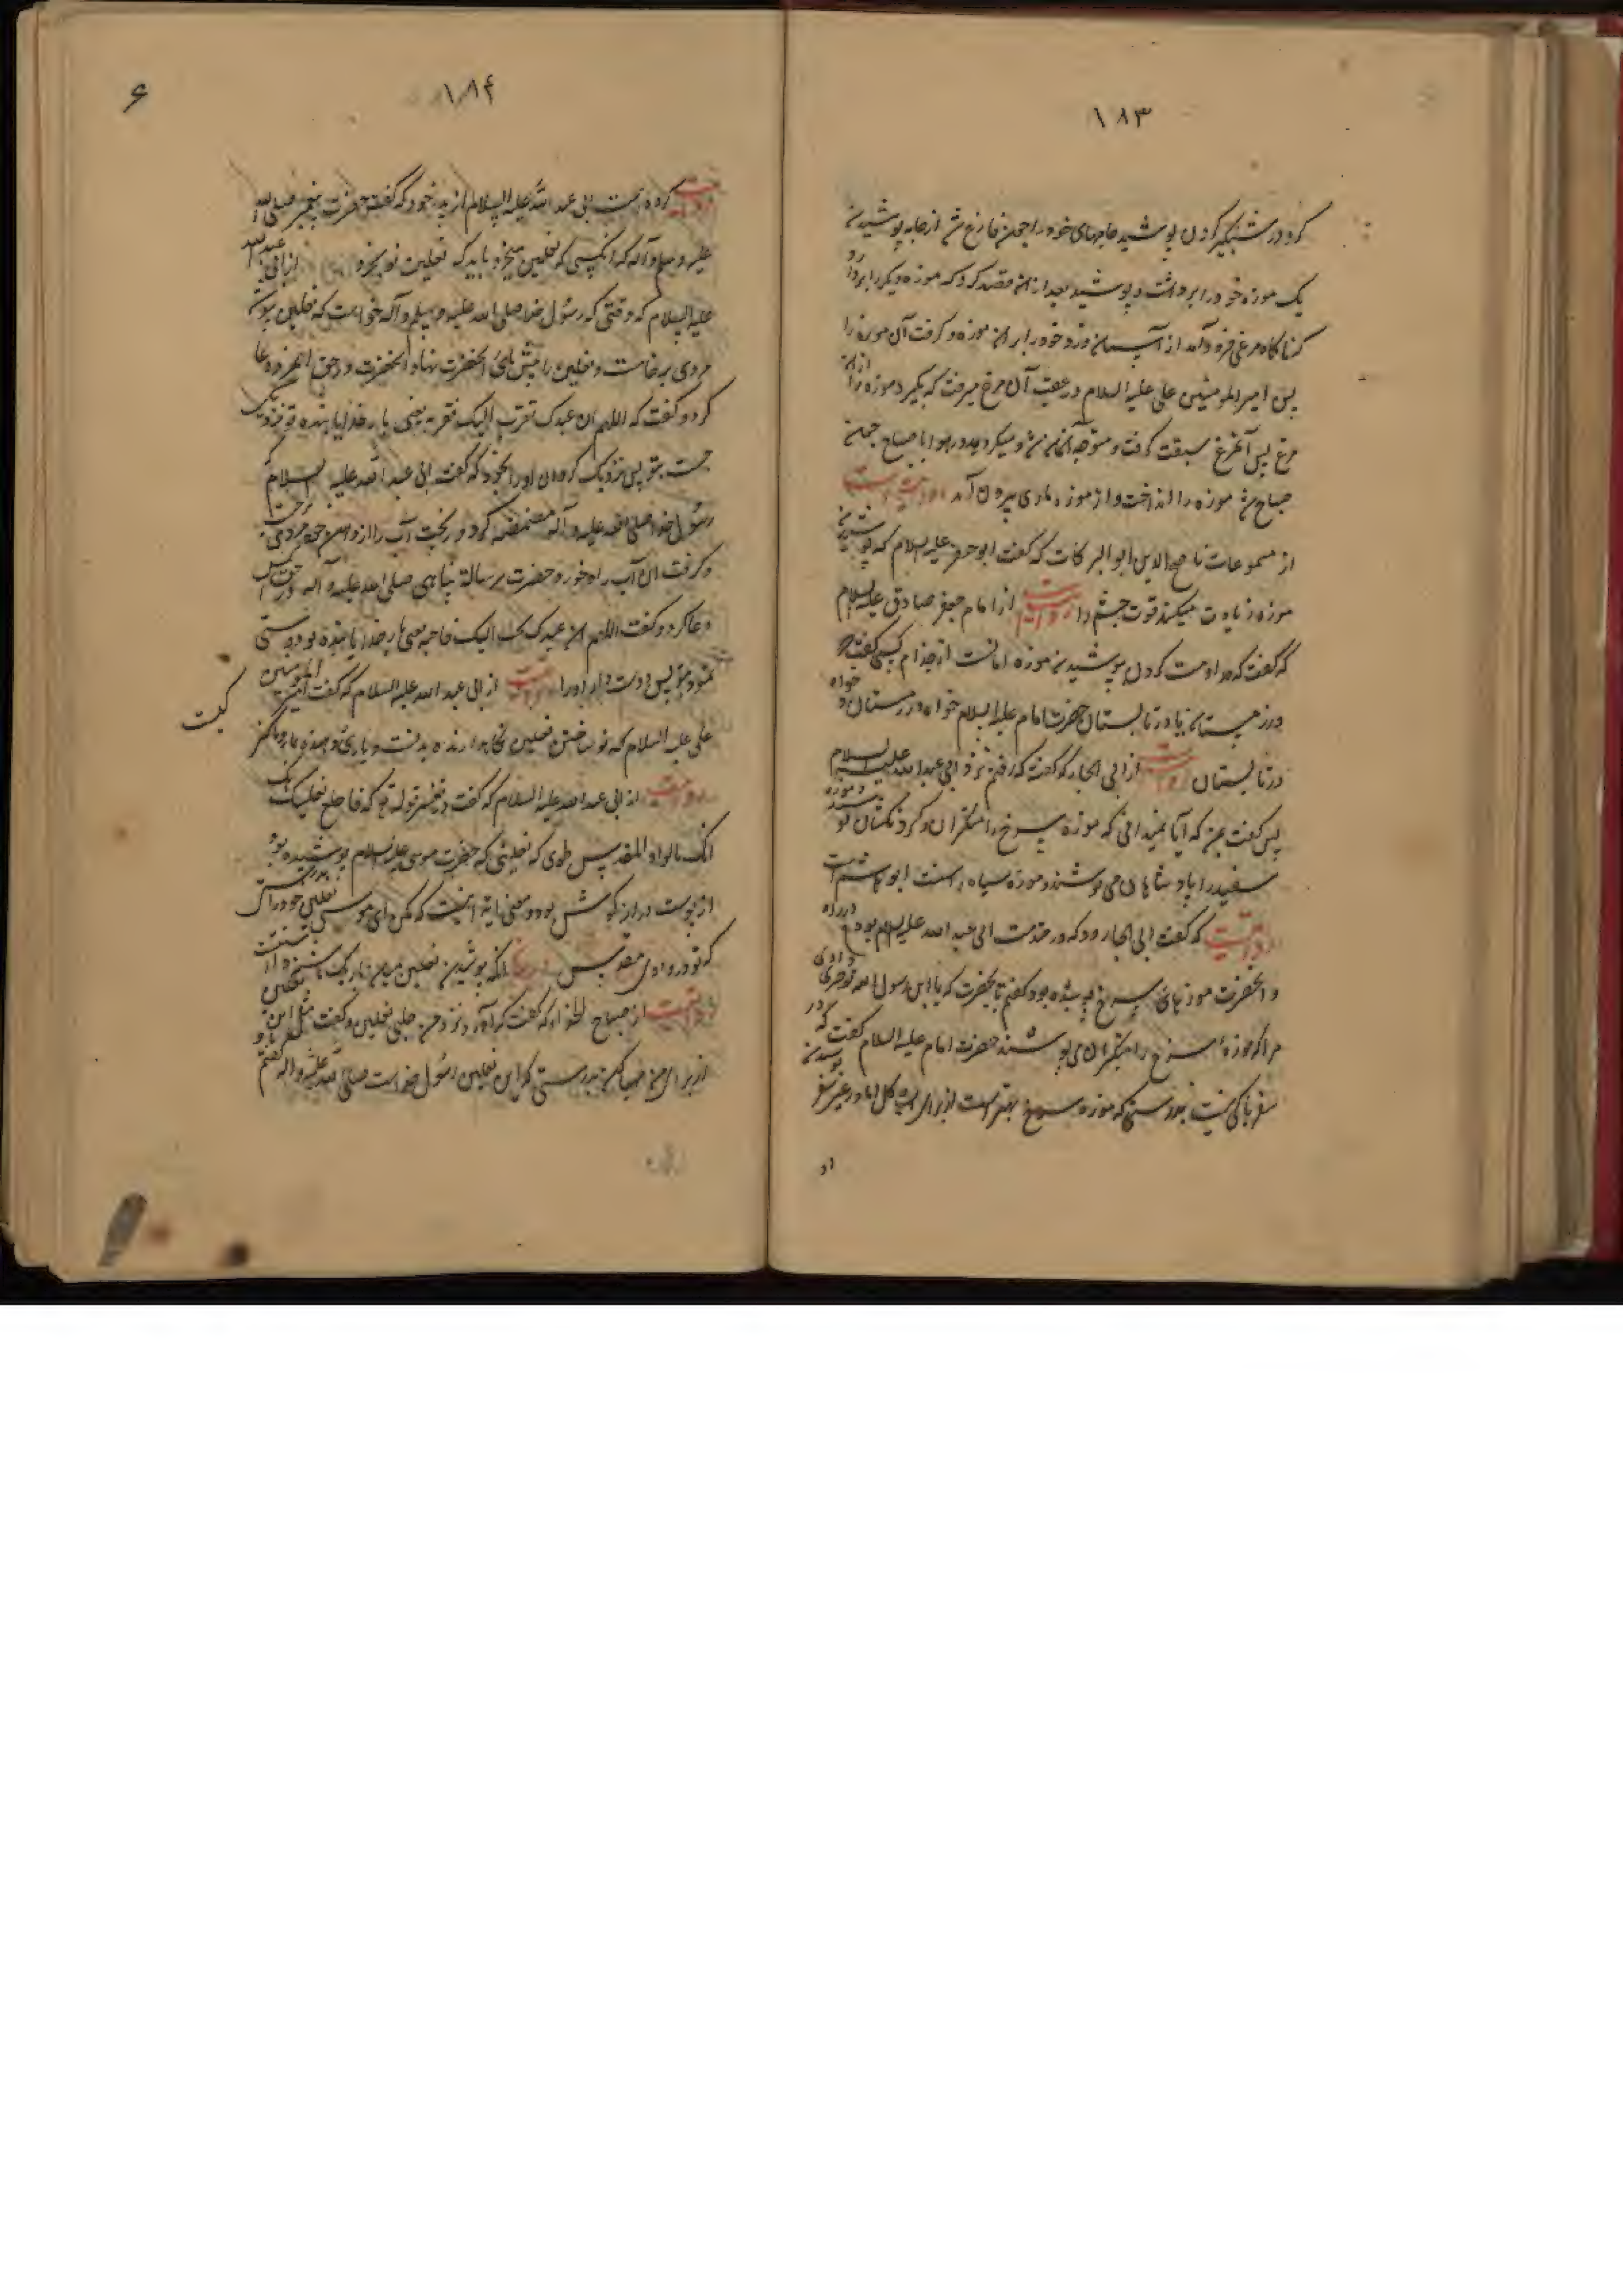 ۱۸۳
کرد در شبگیر کردن پوشید جامهای خود را چون فارغ شد از جامه پوشیدن
یک موزه خود را برداشت و پوشید بعد از آن قصد کرد که موزه دیگر را بردارد
که ناگاه مرغی فرود آمد از آسمان و زد خود را بر آن موزه و گرفت آن موزه را
پس امیر المومنین علی علیه السلام در عقب آن مرغ میرفت که بگیرد موزه را از آن
مرغ پس آنمرغ سبقت گرفت و متوجه آسمان شد و میگردید در هوا تا صباح چون
صباح شد موزه را انداخت و از موزه ماری بیرون آمد روایتست
از مسموعات ناصح الدین ابو البرکات که گفت ابو جعفر علیه السلام که پوشیدن
موزه زیادت میکند قوت چشم را روایتست از امام جعفر صادق علیه السلام
که گفت که مداومت کردن پوشیدن موزه امانست از جذام کسی گفت
در زمستان یا در تابستان حضرت امام علیه السلام خواه در زمستان و خواه
در تابستان روایتست از ابی الجارود گفت که رفتم نزد ابی عبد الله علیه السلام
پس گفت بمن که آیا نمیدانی که موزه سرخ را متکبران و گردنکشان و موزه
سفید را پادشاهان می پوشند و موزه سیاه سنت
روایتست که گفت ابی الجارود که در خدمت ابی عبد الله علیه السلام بودم در راه
و آنحضرت موزهای سرخ پوشیده بود گفتم بآنحضرت که یا ابن رسول الله تو خبر دادی
مرا که موزه سرخ را متکبران می پوشند حضرت امام علیه السلام گفت که در
سفر باکی نیست بدرستی که موزه سرخ بهتر است از برای گل اما در غیر سفر
او
۱۸۴
۶
روایت کرده است ابی عبد الله علیه السلام از پدر خود که گفت حضرت پیغمبر صلی الله
علیه و سلم و آله که آنکسی که نعلین میخرد باید که نعلین نو بخرد از ابی عبد الله
علیه السلام که وقتی که رسول خدا صلی الله علیه و سلم و آله خواست که نعلین پوشد
مردی برخاست و نعلین را پیش پای آنحضرت نهاد آنحضرت در حق آنمرد دعا
کرد و گفت که اللهم ان عبدک تقرب الیک فقربه یعنی بار خدایا بنده تو نزدیکی
جست بتو پس نزدیک گردان او را بخود که گفت ابی عبد الله علیه السلام که
رسول خدا صلی الله علیه و آله مضمضه کرد و ریخت آب را از دهن خود مردی برجست
و گرفت آن آب را و خورد حضرت رسالة پناهی صلی الله علیه و آله در حقش
دعا کرد و گفت اللهم ان عبدک تحبب الیک فاحبه یعنی بار خدایا بنده تو دوستی
نمود بتو پس دوست دار او را روایتست از ابی عبد الله علیه السلام که گفت امیر المومنین
علی علیه السلام که نو ساختن نعلین نگاه دارنده بدنست و یاری دهنده نماز
روایتست از ابی عبد الله علیه السلام که گفت در تفسیر قوله تع که فاخلع نعلیک
انک بالواد المقدس طوی که نعلینی که حضرت موسی علیه السلام پوشیده بود
از پوست دراز گوش بود و معنی آیه اینست که بکن ای موسی نعلین خود را بدرستی
که تو در وادی مقدس
روایتست از صباح الحذاء که گفت که
از برای من مهیا کن بدرستی که این نعلین رسول خداست صلی الله علیه و اله گفتم